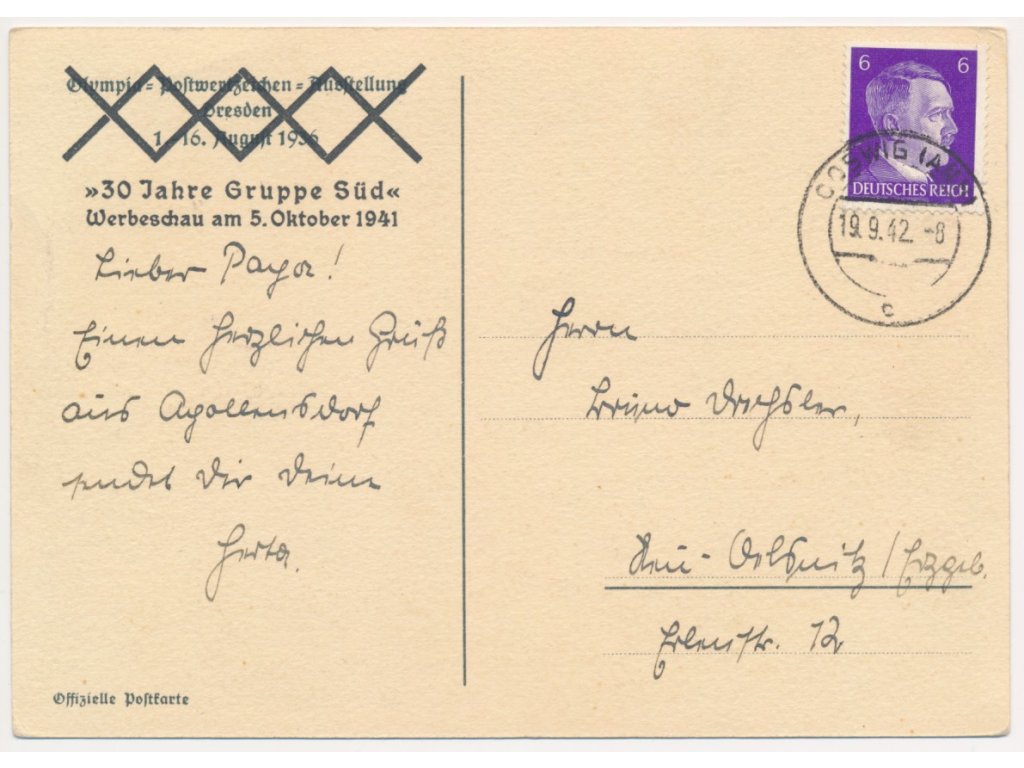 Olympia-Postwertzeichen-Ausstellung
Dresden
1.-16. August 1936
»30 Jahre Gruppe Süd«
Werbeschau am 5. Oktober 1941
Lieber Papa!
Einen herzlichen Gruß
aus Apollensdorf
sendet Dir Deine
Herta.
Offizielle Postkarte
6 6
DEUTSCHES REICH
COSWIG (ANH
19.9.42.-8
c
Herrn
Bruno Drechsler,
Neu-Oelsnitz/Erzgeb.
Erlenstr. 12